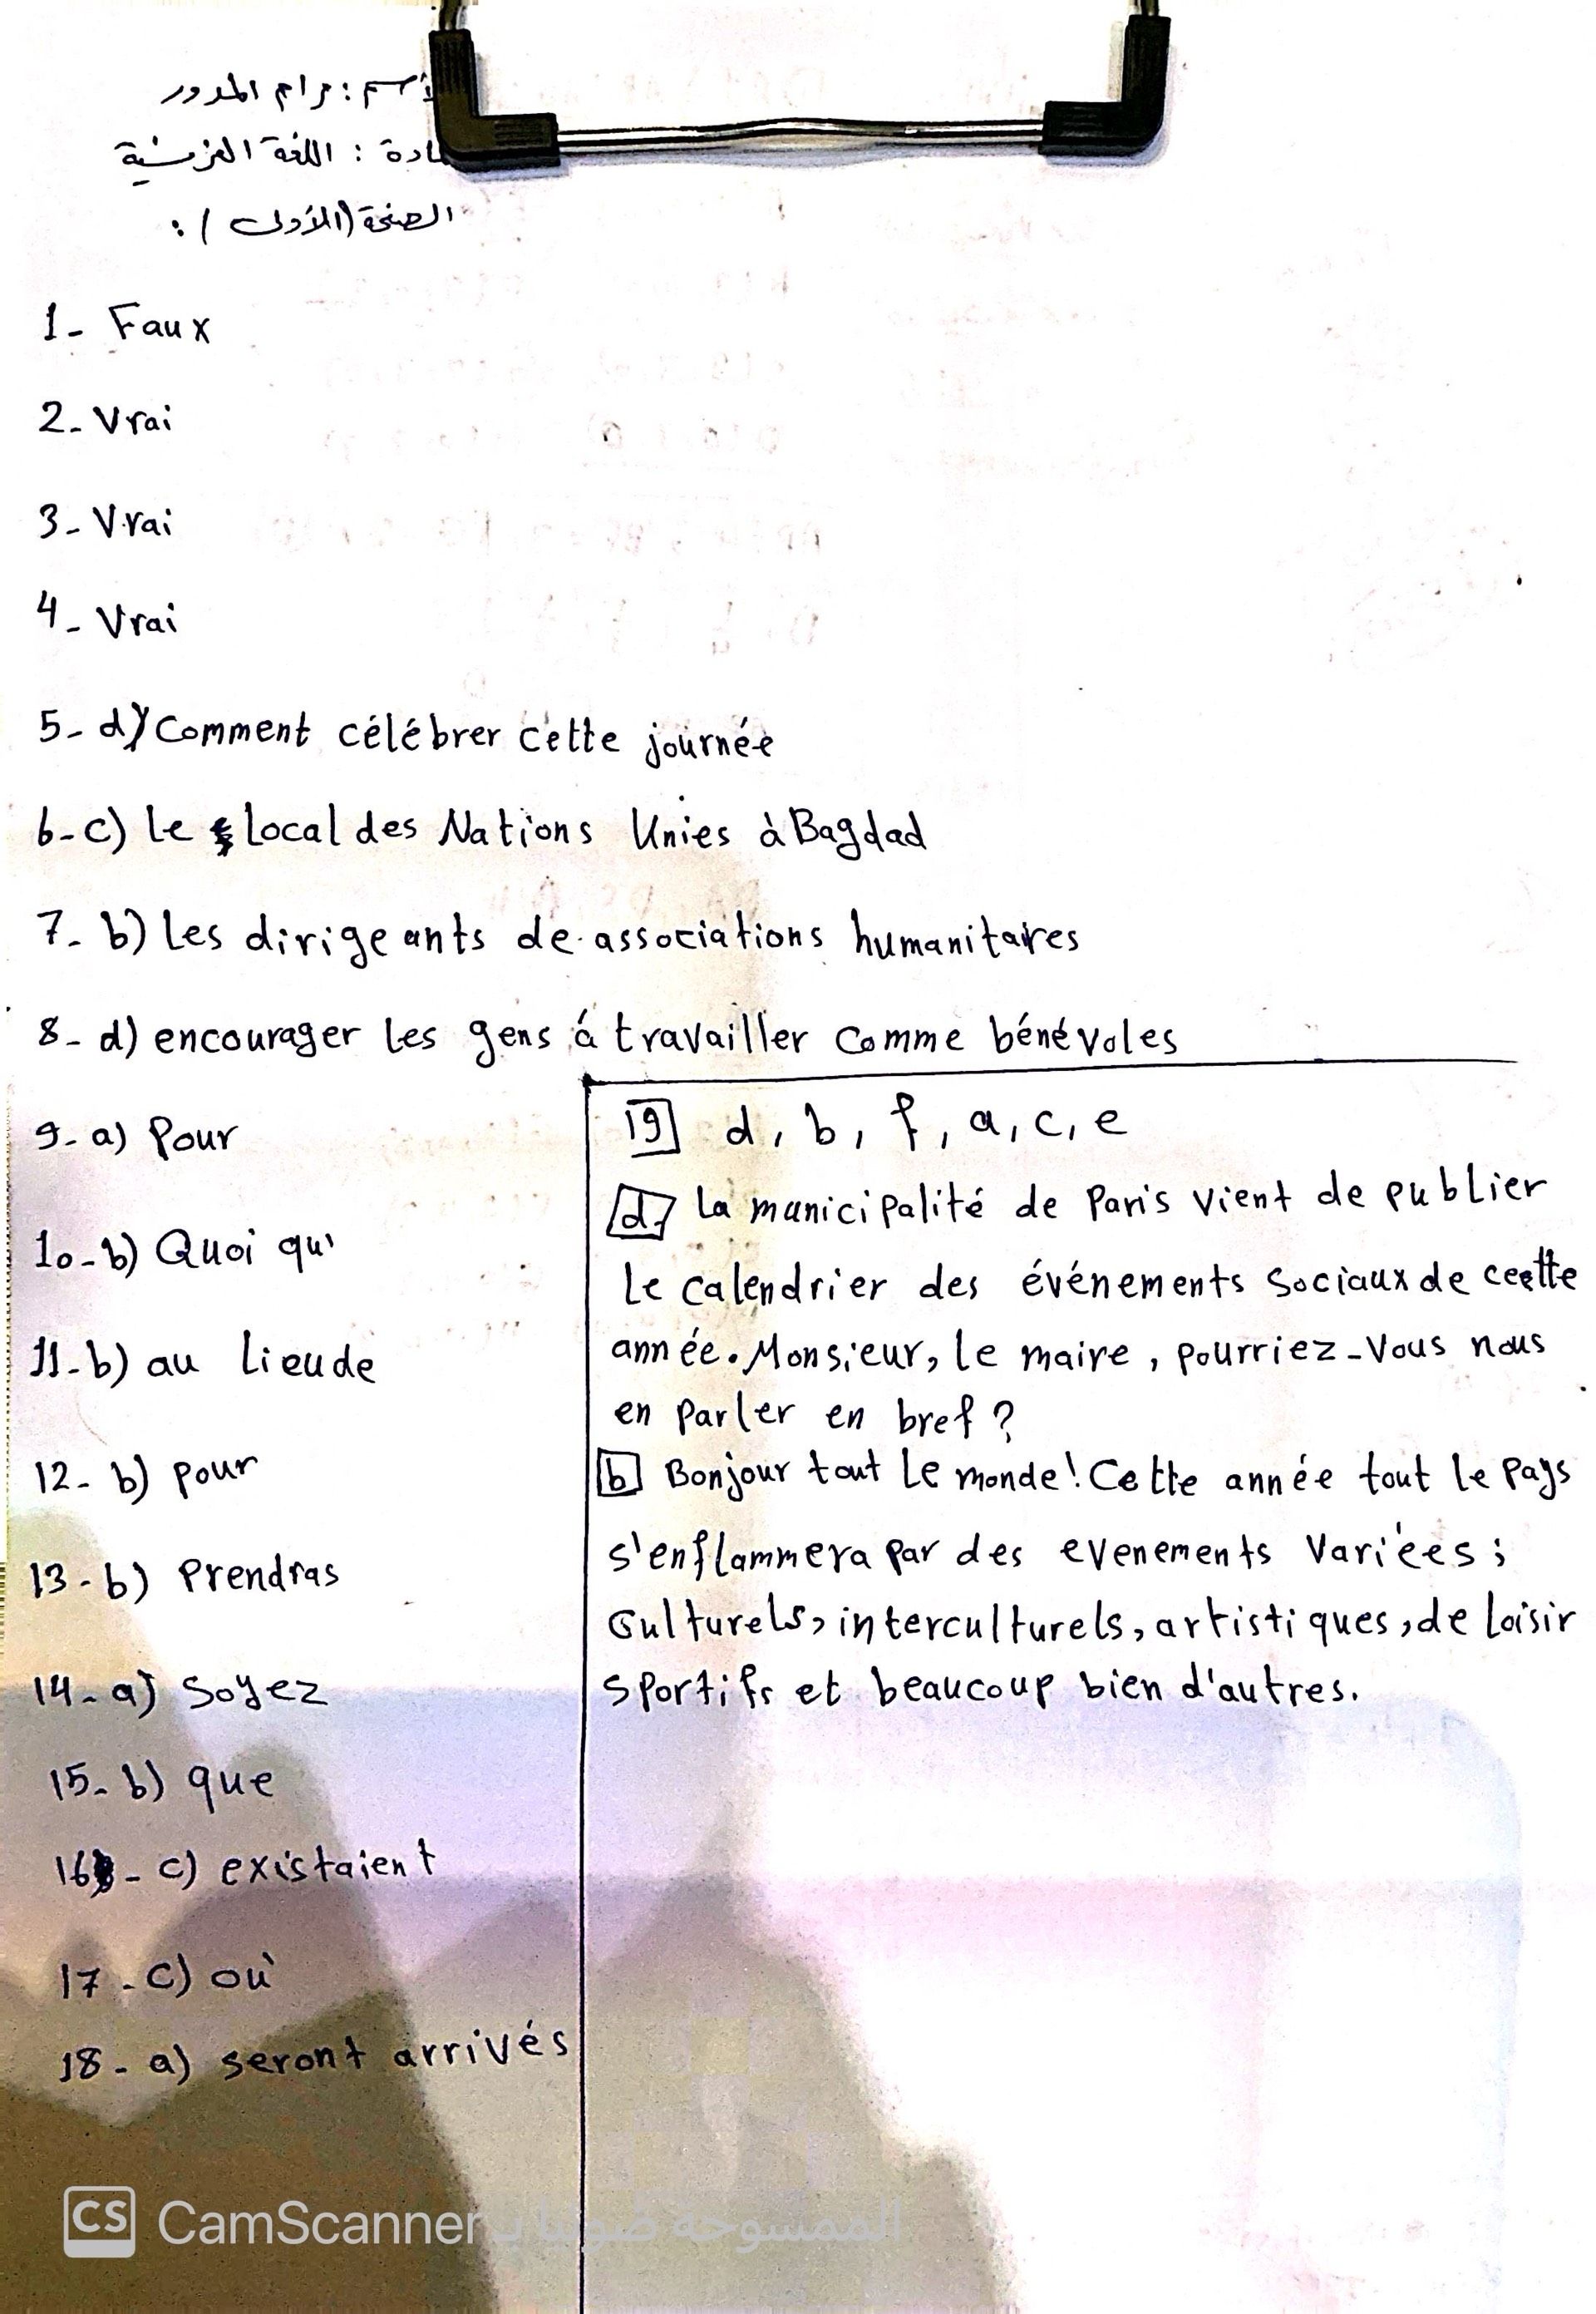 الأسم : مرام المدور
المادة : اللغة الفرنسية
الصفحة (الأولى) :
1- Faux
2- Vrai
3- Vrai
4- Vrai
5- d) Comment célébrer cette journée
6-c) Le local des Nations Unies à Bagdad
7- b) Les dirigeants de associations humanitaires
8- d) encourager les gens á travailler comme bénévoles
9- a) Pour
10-b) Quoi qu'
11-b) au Lieu de
12- b) pour
13-b) Prendras
14- a) Soyez
15- b) que
16- c) existaient
17-c) où
18- a) seront arrivés
19 d, b, f, a, c, e
d, La municipalité de Paris vient de publier
Le calendrier des événements sociaux de cette
année. Monsieur, le maire, pourriez-vous nous
en parler en bref ?
b Bonjour tout Le monde! Cette année tout le pays
s'enflammera par des evenements variées ;
Culturels, interculturels, artistiques, de loisir
sportifs et beaucoup bien d'autres.
CS CamScanner الممسوحة ضوئيا بـ